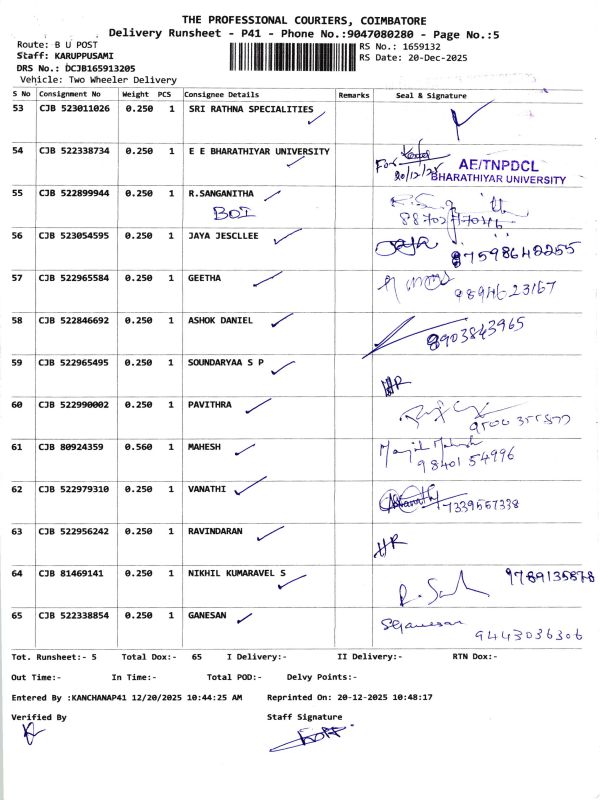 THE PROFESSIONAL COURIERS, COIMBATORE
Delivery Runsheet - P41 - Phone No.:9047080280 - Page No.:5
Route: B U POST
RS No.: 1659132
Staff: KARUPPUSAMI
RS Date: 20-Dec-2025
DRS No.: DCJB165913205
Vehicle: Two Wheeler Delivery
S No Consignment No Weight PCS Consignee Details Remarks Seal & Signature
53 CJB 523011026 0.250 1 SRI RATHNA SPECIALITIES
54 CJB 522338734 0.250 1 E E BHARATHIYAR UNIVERSITY
For
20/12/25
AE/TNPDCL
BHARATHIYAR UNIVERSITY
55 CJB 522899944 0.250 1 R.SANGANITHA
BOI
56 CJB 523054595 0.250 1 JAYA JESCLLEE
87598642255
57 CJB 522965584 0.250 1 GEETHA
58 CJB 522846692 0.250 1 ASHOK DANIEL
8903843965
59 CJB 522965495 0.250 1 SOUNDARYAA S P
HR
60 CJB 522990002 0.250 1 PAVITHRA
61 CJB 80924359 0.560 1 MAHESH
98401 54996
62 CJB 522979310 0.250 1 VANATHI
7339557338
63 CJB 522956242 0.250 1 RAVINDARAN
HR
64 CJB 81469141 0.250 1 NIKHIL KUMARAVEL S
9789135878
65 CJB 522338854 0.250 1 GANESAN
SGanesan
9443036306
Tot. Runsheet:- 5 Total Dox:- 65 I Delivery:- II Delivery:- RTN Dox:-
Out Time:- In Time:- Total POD:- Delvy Points:-
Entered By :KANCHANAP41 12/20/2025 10:44:25 AM Reprinted On: 20-12-2025 10:48:17
Verified By Staff Signature